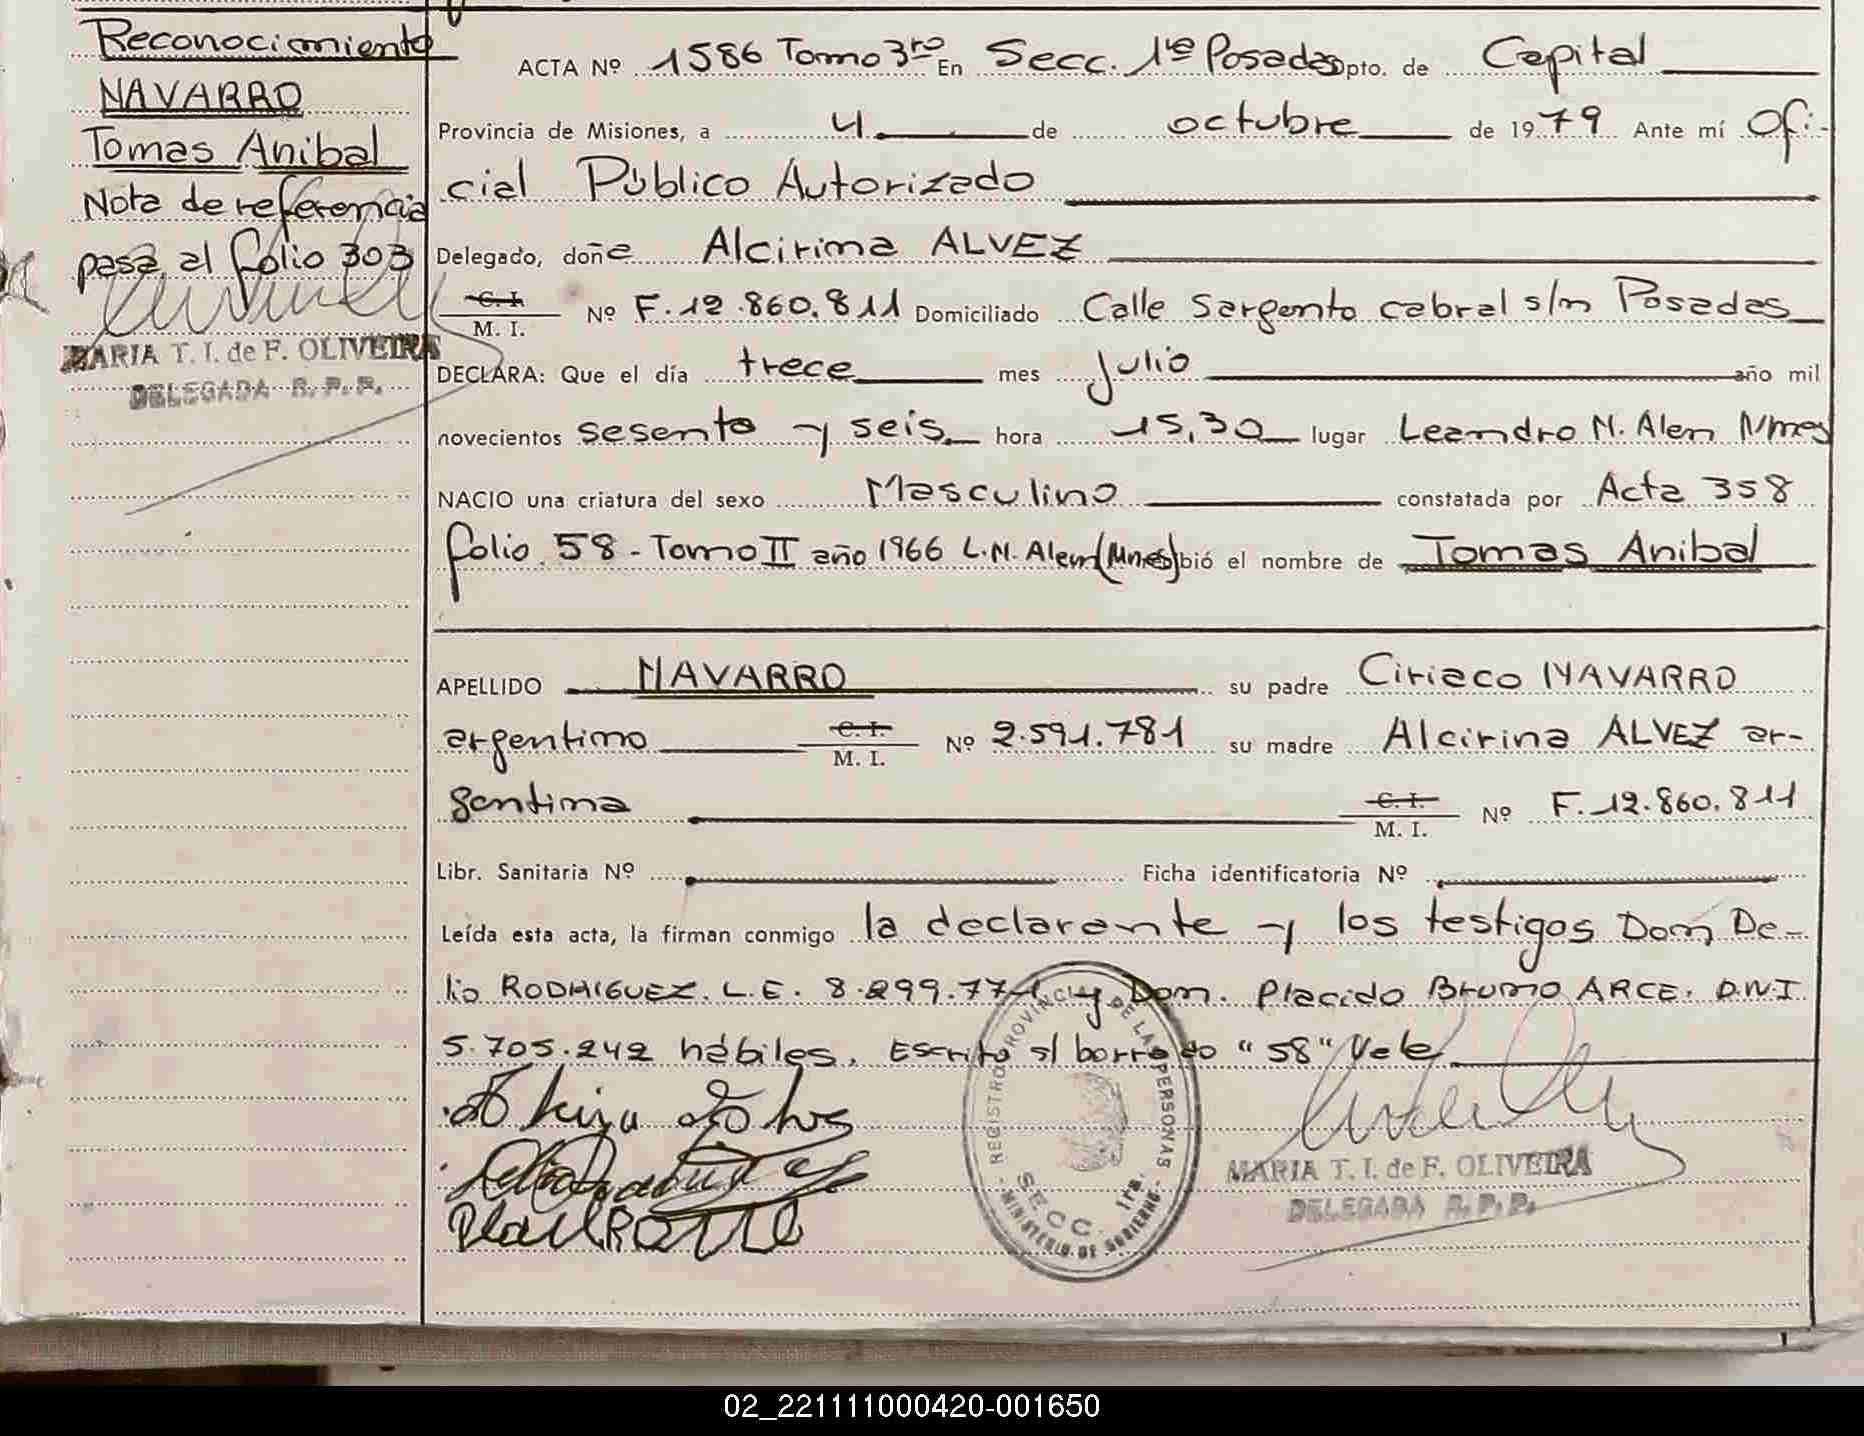 Reconocimiento
NAVARRO
Tomas Anibal
Nota de referencia
pasa al folio 303
MARIA T. I. de F. OLIVEIRA
DELEGADA R. P. P.
ACTA Nº 1586 Tomo 3ro En Secc. 1ra Posadas Dpto. de Capital
Provincia de Misiones, a 4 de octubre de 1979 Ante mí Ofi-
cial Público Autorizado
Delegado, doña Alcirina ALVEZ
C. I.
M. I. Nº F. 12.860.811 Domiciliado Calle Sargento cabral s/n Posadas
DECLARA: Que el día trece mes julio año mil
novecientos sesenta y seis hora 15,30 lugar Leandro N. Alem Mnes
NACIO una criatura del sexo Masculino constatada por Acta 358
folio 58 - Tomo II año 1966 L.N. Alem (Mnes) bió el nombre de Tomas Anibal
APELLIDO NAVARRO su padre Ciriaco NAVARRO
argentino C. I. M. I. Nº 2.591.781 su madre Alcirina ALVEZ ar-
gentina C. I. M. I. Nº F. 12.860.811
Libr. Sanitaria Nº Ficha identificatoria Nº
Leída esta acta, la firman conmigo la declarante y los testigos Don De-
lio RODRIGUEZ. L.E. 8.299.771 y Don. Placido Bruno ARCE. D.N.I
5.705.242 hábiles. Escrito s/ borrado "58" Vale
REGISTRO PROVINCIAL DE LAS PERSONAS
SECC. 1ra.
MINISTERIO DE GOBIERNO
MARIA T. I. de F. OLIVEIRA
DELEGADA R. P. P.
02_221111000420-001650